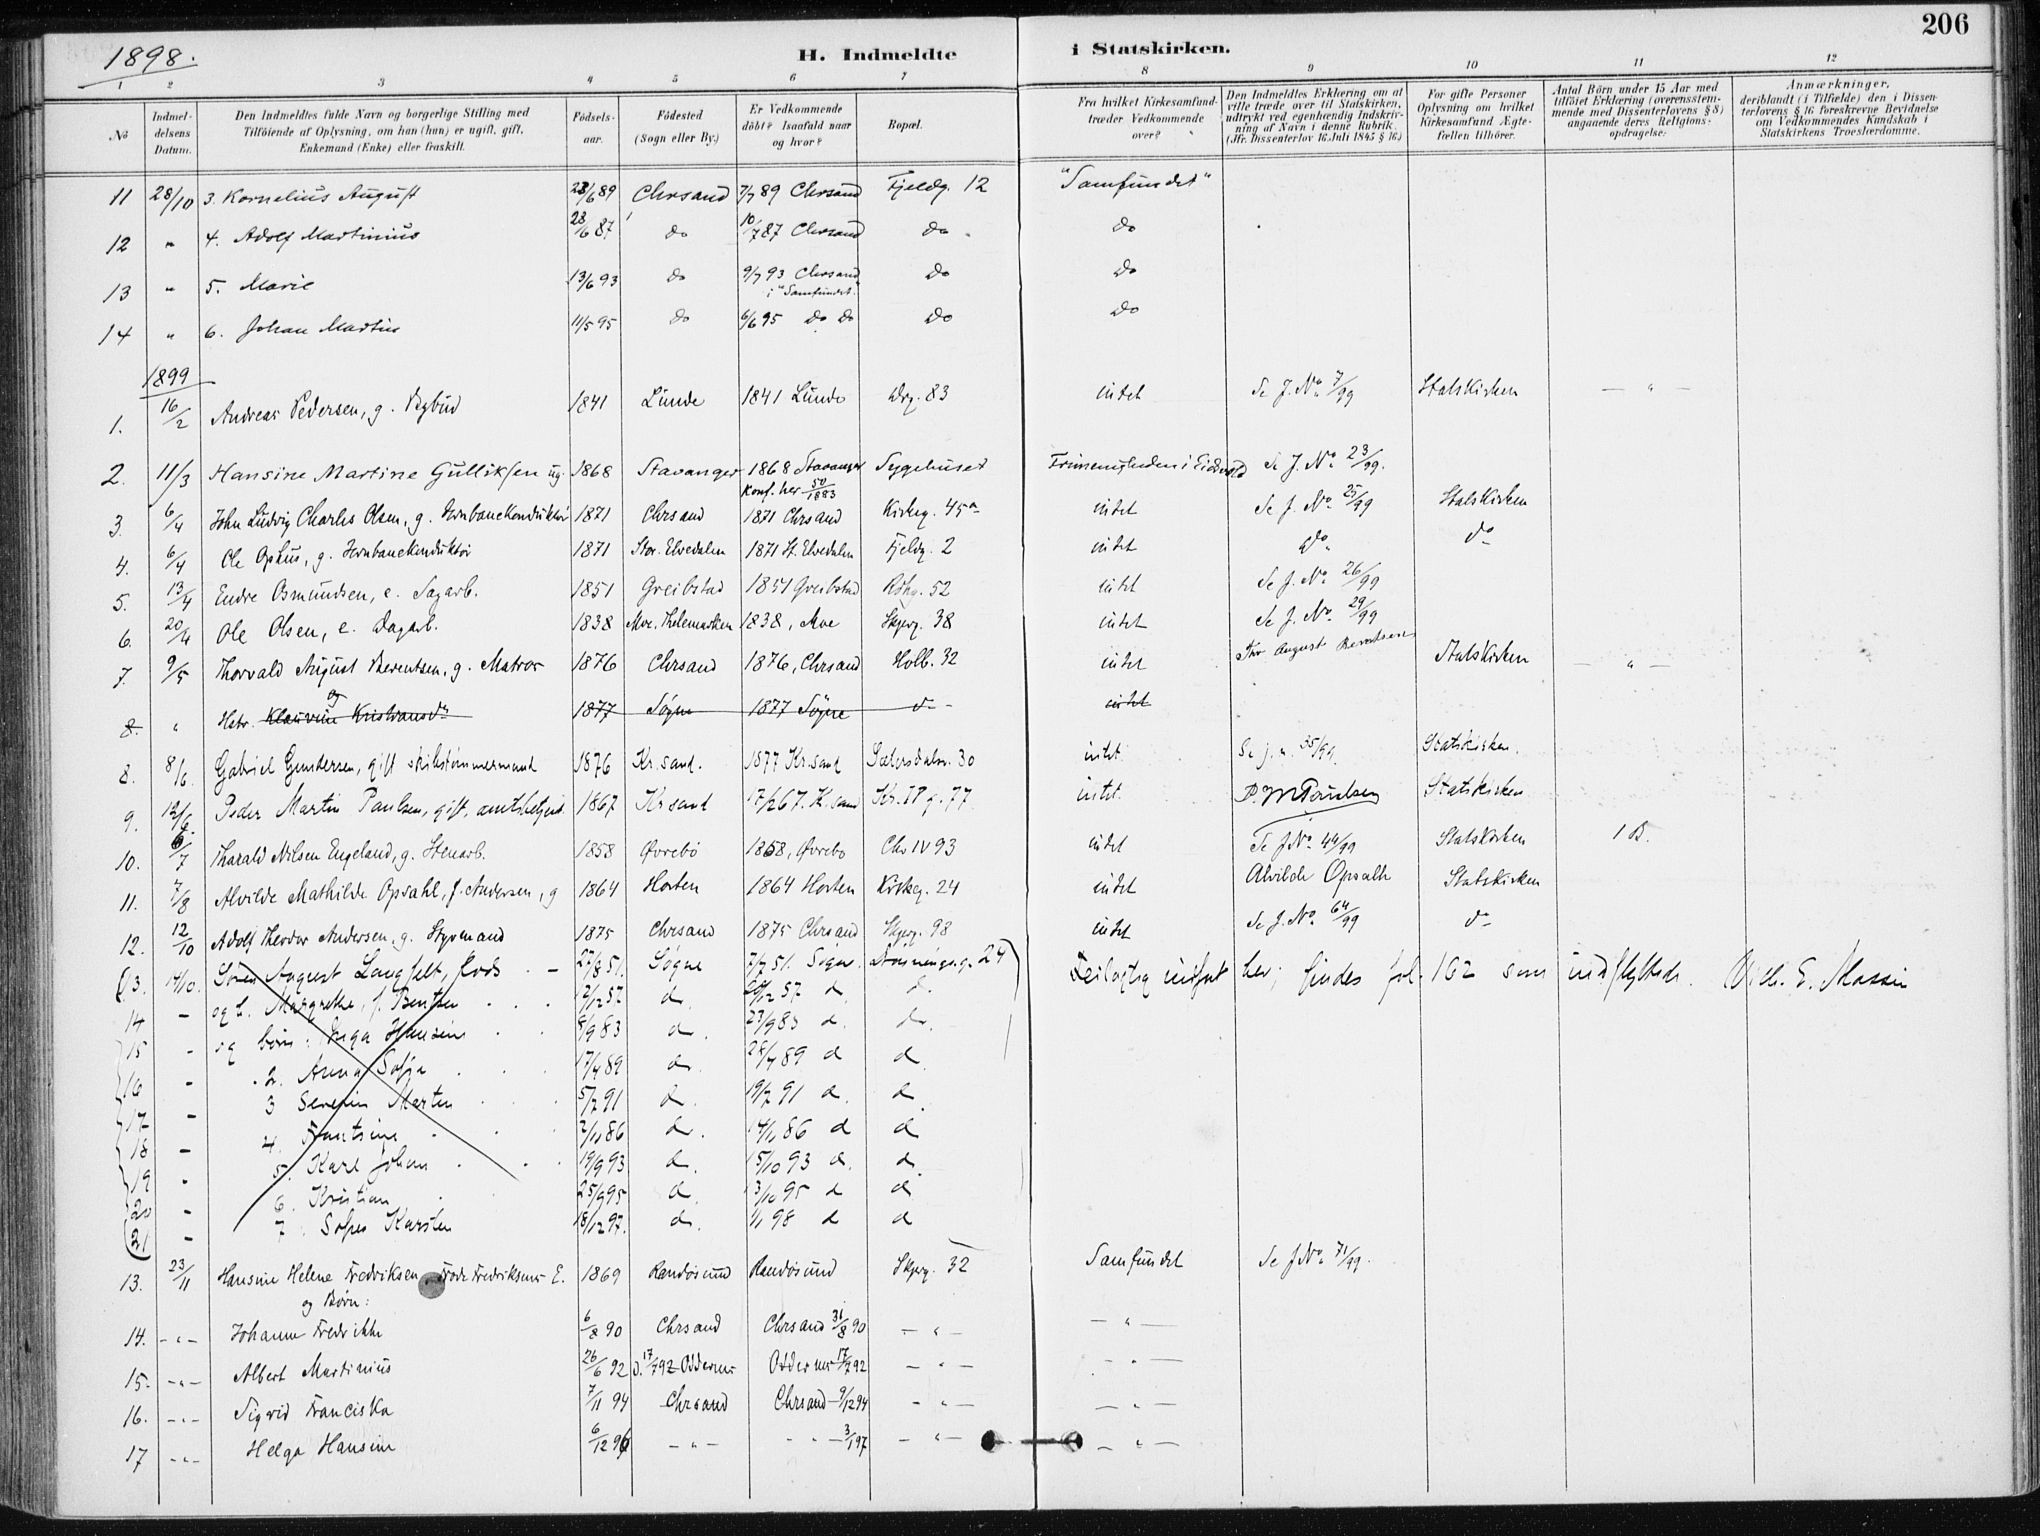 206
1898.
H. Indmeldte i Statskirken.
1 2 3 4 5 6 7 8 9 10 11 12
No
Indmeldelsens Datum.
Den Indmeldtes fulde Navn og borgerlige Stilling med Tilföiende af Oplysning, om han (hun) er ugift, gift, Enkemand (Enke) eller fraskilt.
Födselsaar.
Födested (Sogn eller By.)
Er Vedkommende döbt? Isaafald naar og hvor?
Bopæl.
Fra hvilket Kirkesamfund træder Vedkommende over?
Den Indmeldtes Erklæring om at ville træde over til Statskirken, udtrykt ved egenhændig Indskrivning af Navn i denne Rubrik. (Jfr. Dissenterlov 16. Juli 1845 § 16.)
For gifte Personer Oplysning om hvilket Kirkesamfund Ægtefællen tilhörer.
Antal Börn under 15 Aar med tilföiet Erklæring (overensstemmende med Dissenterlovens § 8) angaaende deres Religionsopdragelse.
Anmærkninger, deriblandt (i Tilfælde) den i Dissenterlovens § 16 foreskrevne Bevidnelse om Vedkommendes Kundskab i Statskirkens Troeslærdomme.
11 28/10 3. Kornelius August 23/6 89 Chrsand 7/7 89 Chrsand Fjeldg. 12 "Samfundet"
12 " 4. Adolf Martinius 28/6 87. do 10/7 87 Chrsand do. do
13 " 5. Marie 13/6 93 do 9/7 93 Chrsand i "Samfundet." do do
14 " 6. Johan Martin 11/5 95 do 6/6 95 do do do do
1899
1. 16/2 Andreas Pedersen, g. Bybud 1841 Lunde 1841 Lunde Drg. 83 intet Se J. No. 7/99 Statskirken — " —
2. 11/3 Hansine Martine Gulliksen ug. 1868 Stavanger 1868 Stavanger Sygehuset Frimenigheden i Eidsvold Se J. No. 23/99.
Konf. her 50/1883
3. 6/4 John Ludvig Charles Olsen, g. Jernbanekonduktør 1871 Chrsand 1871 Chrsand Kirkeg. 45a intet Se J. No. 25/99 Statskirken
4. 6/4 Ole Ophus, g. Jernbanekonduktør 1871 Stor. Elvedalen 1871 St. Elvedalen Fjeldg. 2 intet do. do
5. 13/4 Endre Osmundsen, e. Sagarb. 1851 Greibstad 1851 Greibstad 52 intet Se J. No. 26/99
6. 20/4 Ole Olsen, e. Dagarb. 1838 Moe. Thelemarken 1838, Moe Skjerg. 38 intet Se J. No. 29/99
7. 9/5 Thorvald August Berentsen, g. Matros 1876 Chrsand 1876, Chrsand Holb. 32 intet Thv August Berentsen Statskirken — " —
8. " og Hstr. Klauvine Kristiansdr 1877 Søgne 1877 Søgne do intet
8. 8/6 Gabriel Gundersen, gift skibstømmermand 1876 Kr.sand. 1877 Kr.sand Sætersdalsv. 30 intet Se j. n. 35/99. Statskirken.
9. 12/6. Peder Martin Paulsen, gift, amtsbetjent 1867 Kr sand 17/2 67. K.sand Kr. IV g. 77 intet. P. M Paulsen Statskirken
10. 6/7 Tharald Nilsen Engeland, g. Stenarb. 1858 Øvrebø 1858, Øvrebø Chr IV 93 intet Se J No 44/99 Statskirken 1 B.
11. 7/8 Alvilde Mathilde Opsahl, f. Andersen, g 1864 Horten 1864 Horten Kirkeg. 24 intet Alvilde Opsalh Statskirken
12. 12/10 Adolf Theodor Andersen, g. Styrmand 1875 Chrsand 1875 Chrsand Skjerg. 98 intet Se J. No. 64/99 do
13. 14/10. Sören August Langfelt, 27/8 51. Søgne 7/7 51. Sögne 24 Feilagtig indført her; findes fol. 162 som indflyttede. Vilh. E. Massin
14 - og h. Margrethe, f. Bentsen 12/12 57 d. 20/12 57 d. d.
15 - og börn: Inga Hansine 8/9 83 d. 23/9 83 d. do.
16 - 2. Anna Sofje 17/4 89 d. 28/4 89 d d
17 - 3 Severin Marten 5/7 91 d. 19/7 91 d. d
18 - 4. 2/11 86 d. 14/11 86 d d
19 - 5. Karl Johan 19/9 93 d. 15/10 93 d. d.
20 - 6. Kristian 25/9 95 d. 13/10 95 d d
21 - 7. Karsten 18/12 97. d. 1/1 98 d d
13. 23/11 Hansine Helene Fredriksen Fredriksens E. 1869 Randøsund Randøsund Skjerg. 32 Samfundet Se J No. 71/99.
og Børn:
14. - " - Johanne Fredrikke 6/8 90 Chrsand Chrsand 31/8 90 — " — — " —
15. - " - Albert Martinius 26/6 92 D. 17/7 92 Oddernes Oddernes 17/7 92 — " — — " —
16. - " - Sigrid Franciska 7/11 94 Chrsand Chrsand 9/12 94 — " — — " —
17 - " - Helga Hansine 6/12 96 — " — — " — 3/1 97 — " — — " —